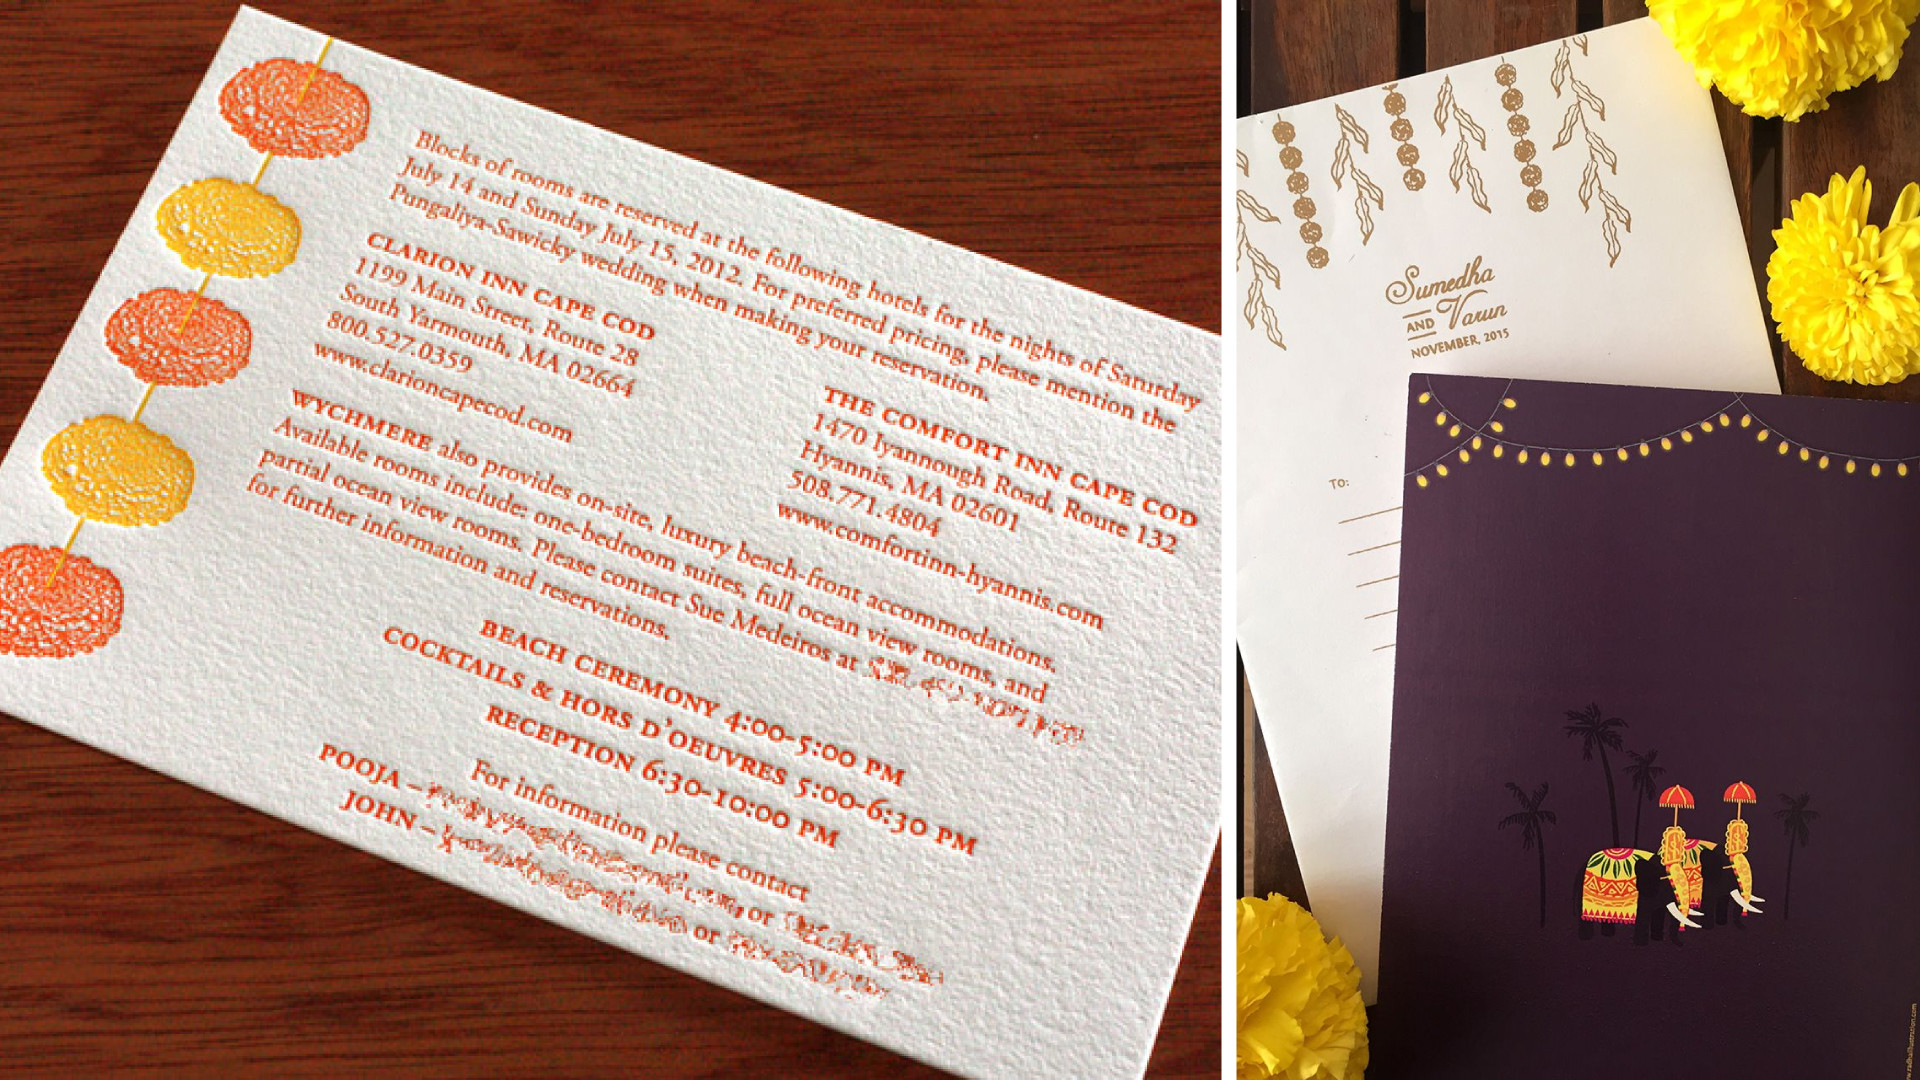 Blocks of rooms are reserved at the following hotels for the nights of Saturday
July 14 and Sunday July 15, 2012. For preferred pricing, please mention the
Pungaliya-Sawicky wedding when making your reservation.
CLARION INN CAPE COD
1199 Main Street, Route 28
South Yarmouth, MA 02664
800.527.0359
www.clarioncapecod.com
THE COMFORT INN CAPE COD
1470 Iyannough Road, Route 132
Hyannis, MA 02601
508.771.4804
www.comfortinn-hyannis.com
WYCHMERE also provides on-site, luxury beach-front accommodations.
Available rooms include: one-bedroom suites, full ocean view rooms, and
partial ocean view rooms. Please contact Sue Medeiros at
for further information and reservations.
BEACH CEREMONY 4:00-5:00 PM
COCKTAILS & HORS D'OEUVRES 5:00-6:30 PM
RECEPTION 6:30-10:00 PM
For information please contact
POOJA – or
JOHN – or
Sumedha
AND Varun
NOVEMBER, 2015
TO: